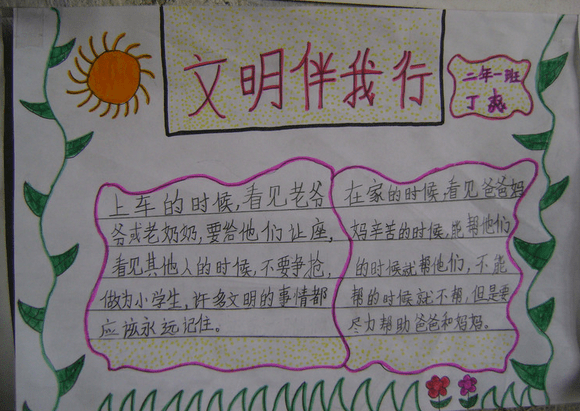 文明伴我行
二年一班
丁
上车的时候,看见老爷
爷或老奶奶,要给他们让座,
看见其他人的时候,不要争抢,
做为小学生,许多文明的事情都
应该永远记住。
在家的时候,看见爸爸妈
妈辛苦的时候,能帮他们
的时候就帮他们,不能
帮的时候就不帮,但是要
尽力帮助爸爸和妈妈。